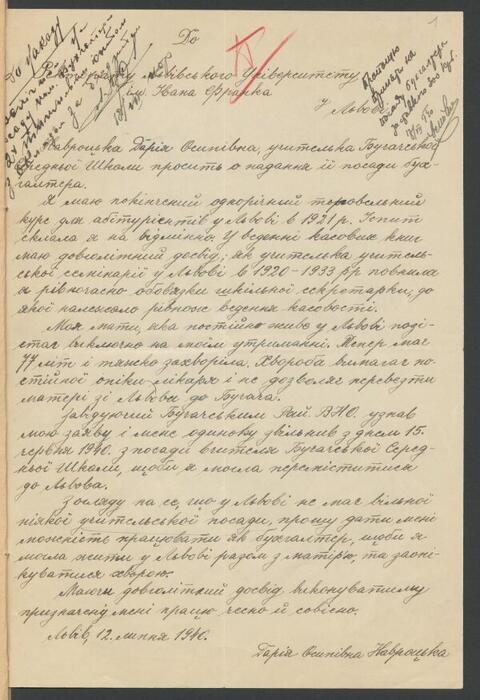 До
Ректорату Львівського Університету
ім. Івана Франка
у Львові
Навроцька Дарія Осипівна, учителька Бучачської
Середньої Школи просить о надання їй посади бух-
галтера.
Я маю покінчений однорічний торговельний
курс для абітурієнтів у Львові в 1921 р. Іспит
склала я на відмінно. У веденні касових книг
маю довголітний досвід, як учителька учитель-
ської семінарії у Львові в 1920-1933 рр повнила
я рівночасно обовязки шкільної секретарки, до
якої належало рівнож ведення касовості.
Моя мати, яка постійно живе у Львові поді-
стає виключно на моїм утриманні. Тепер має
77 літ і тяжко захворіла. Хвороба вимагає по-
стійної опіки лікаря і не дозволяє перевезти
матері зі Львова до Бучача.
Завідуючий Бучачським Рай. ВНО. узнав
мою заяву і мене одинову звільнив з днем 15.
червня 1940. з посади вчителя Бучачської Серед-
ньої Школи, щоби я могла переміститися
до Львова.
З огляду на се, що у Львові не має вільної
ніякої учительської посади, прошу дати мені
можність працювати як бухгалтер, щоби я
могла жити у Львові разом з матірю, та заопі-
куватися хворою.
Маючи довголіткий досвід виконуватиму
призначену мені працю чесно й совісно.
Львів, 12. липня 1940.
Дарія Осипівна Навроцька